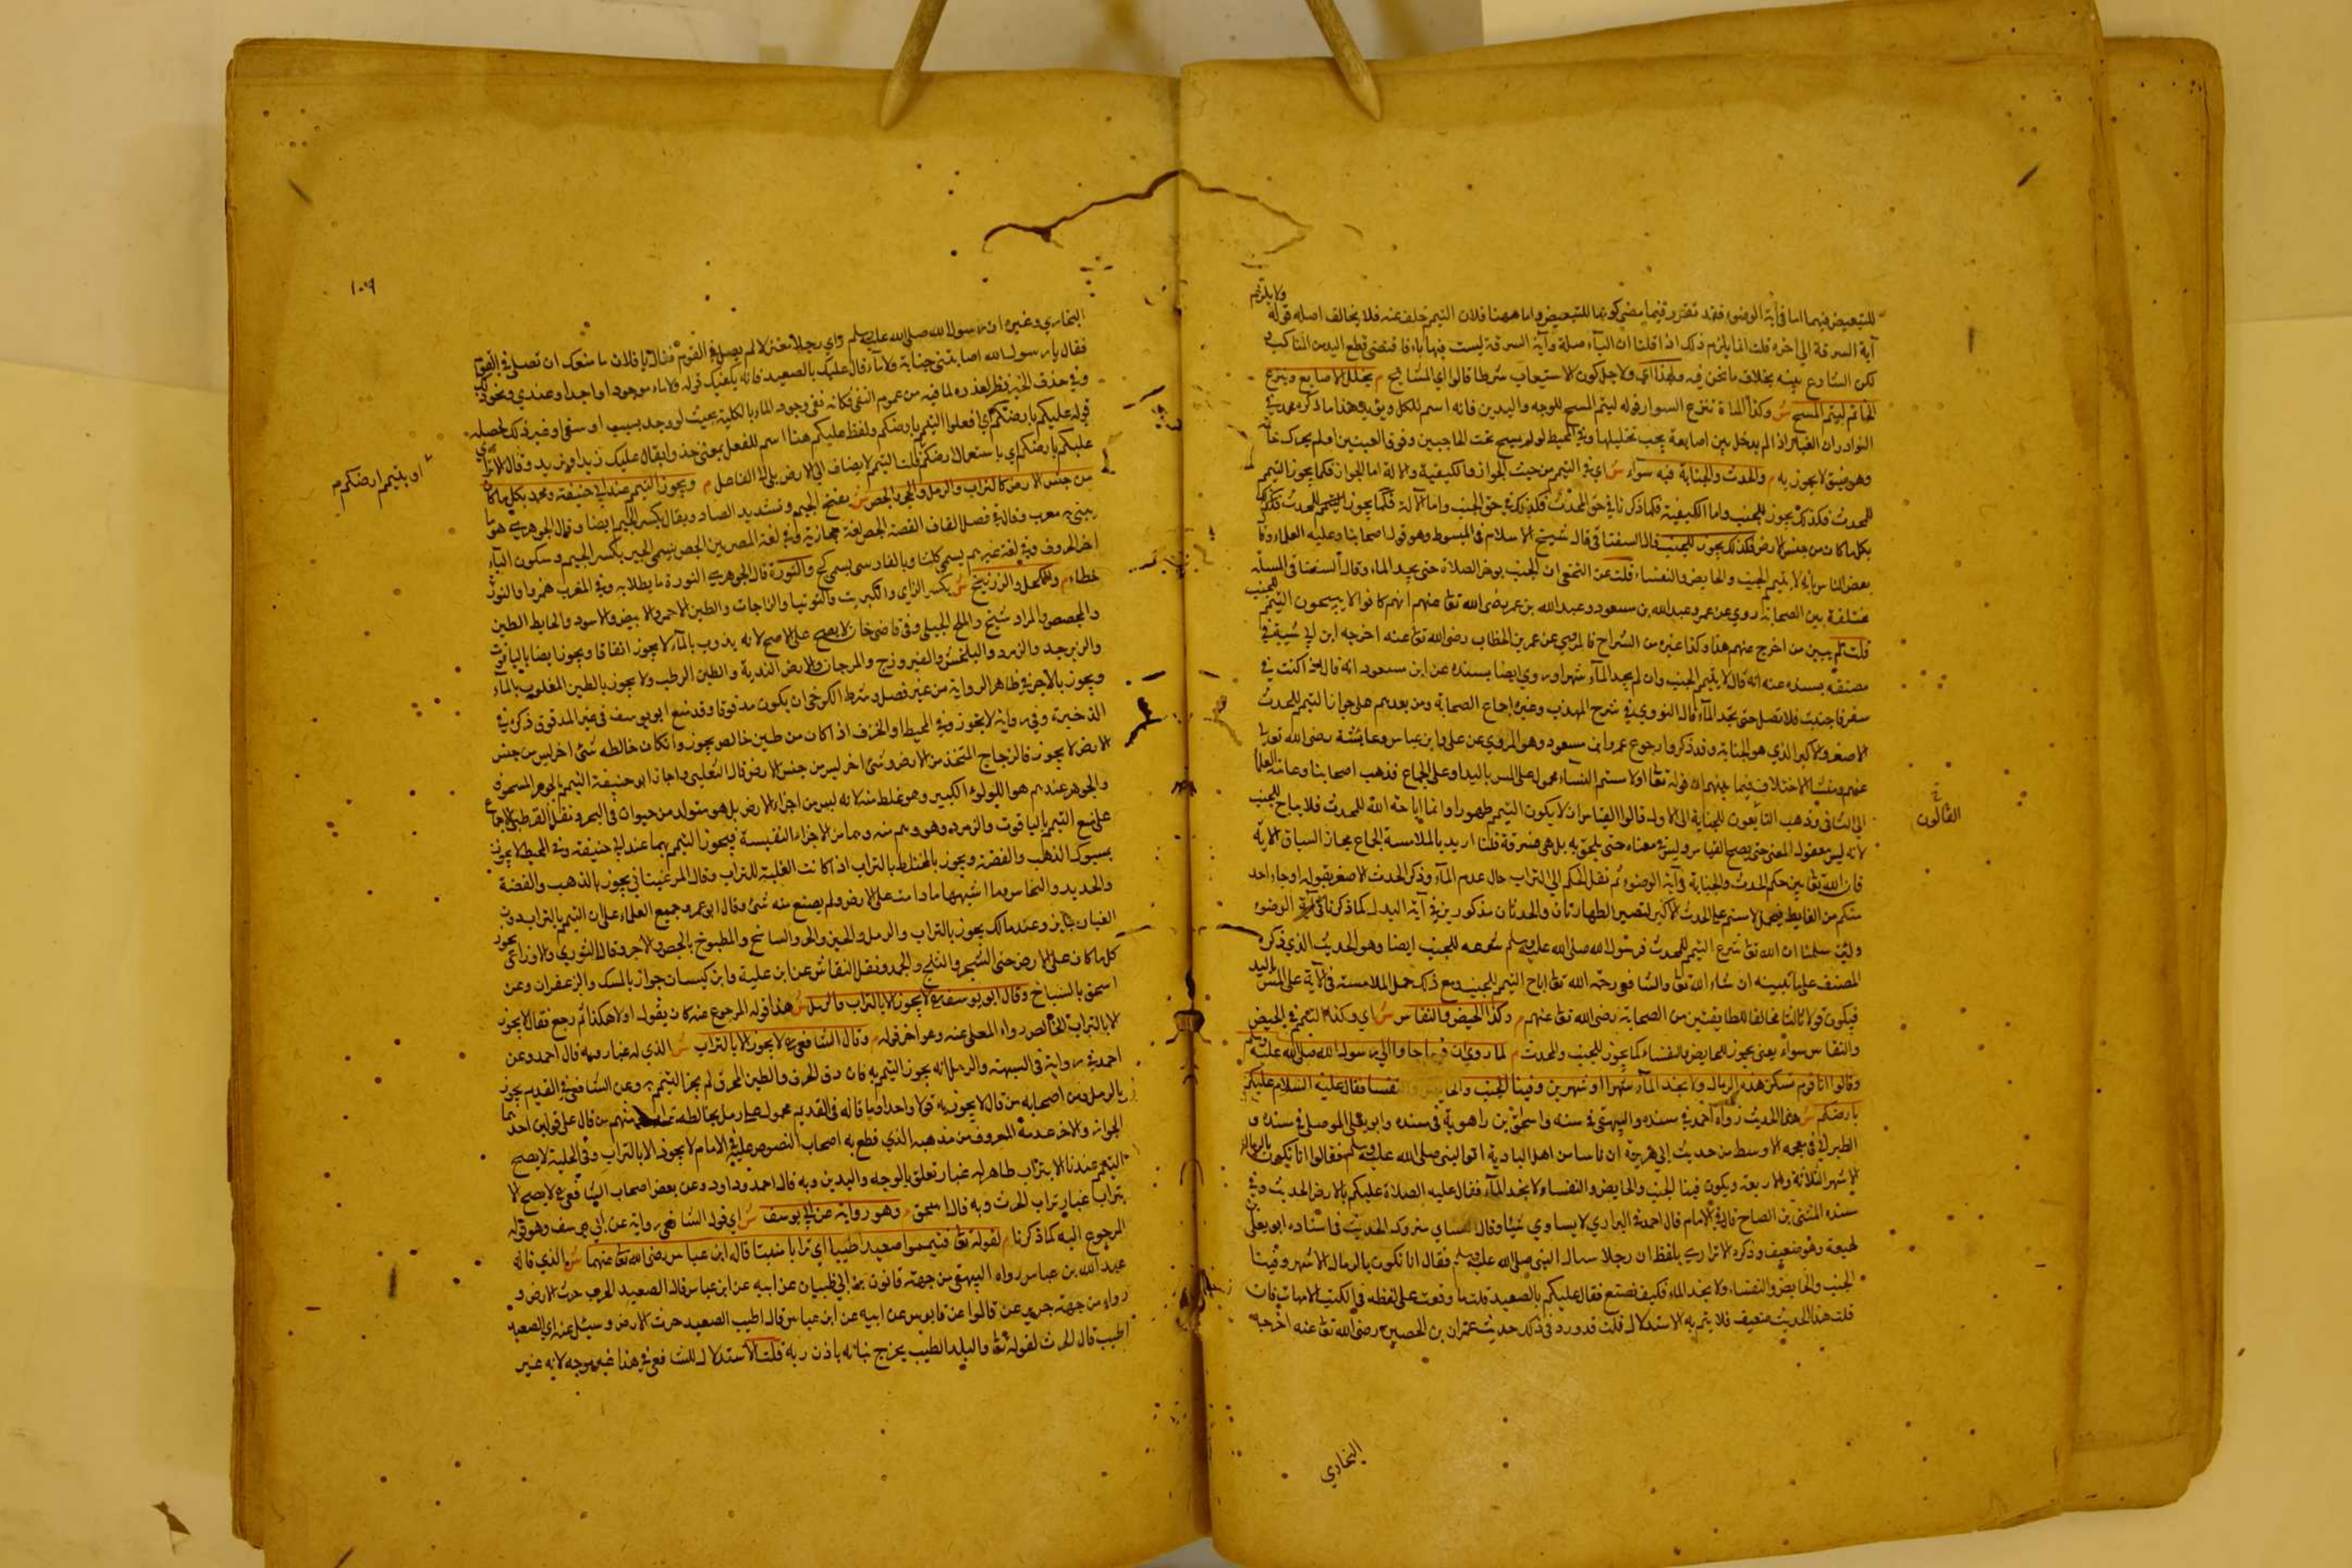 ولا يلزم
للتبعيض فيهما اما في آية الوضوء فقد تقرر فيما مضى كونها للتبعيض واما ههنا فلان التيمم خلف عنه فلا يخالف اصله قوله
آية السرقة الى اخره قلت انما يلزم ذلك اذا قلنا ان الباء صلة وآية السرقة ليست فيها باء فاقتضى قطع اليد من المناكب
لكن الشارع بينه بخلاف ما نحن فيه ولهذا اي ولاجل كون الاستيعاب شرطا قالوا اي المشايخ م يخلل الاصابع وينزع
الخاتم ليتم المسح ش وكذا المراة تنزع السوار قوله ليتم المسح للوجه واليدين فانه اسم للكل ويؤيد هذا ما ذكره محمد في
النوادر ان الغبار اذا لم يدخل بين اصابعه يجب تخليلها وفي المحيط لو لم يمسح تحت الحاجبين وفوق العينين او لم يحرك خاتمه
وهو ضيق لا يجوز به م والحدث والجنابة فيه سواء ش اي في التيمم من حيث الجواز والكيفية والالة اما الجواز فكما يجوز التيمم
للمحدث فكذلك يجوز للجنب واما الكيفية فكما ذكرنا في حق المحدث فكذلك في حق الجنب واما الآلة فكما يجوز التيمم للمحدث
بكل ما كان من جنس الارض فكذلك يجوز للجنب قال السغناقي قال شيخ الاسلام في المبسوط وهو قول اصحابنا وعليه العلماء وقال
بعض الناس بانه لا يتيمم الجنب والحايض والنفساء قلت عن النخعي ان الجنب يوخر الصلاة حتى يجد الماء وقال السغناقي المسئلة
مختلفة بين الصحابة روي عن عمر وعبد الله بن مسعود وعبد الله بن عمر رضى الله تعا عنهم انهم كانوا لا يبيحون التيمم للجنب
قلت لم يبين من اخرج عنهم هذا وكذا غيره من الشراح فالمروي عن عمر بن الخطاب رضى الله تعا عنه اخرجه ابن ابي شيبة في
مصنفه بسنده عنه انه قال لا يتيمم الجنب وان لم يجد الماء شهرا وروي ايضا بسنده عن ابن مسعود انه قال اذا كنت في
سفر فاجنبت فلا تصل حتى تجد الماء قال النووي في شرح المهذب وغيره اجماع الصحابة ومن بعدهم على جواز التيمم للمحدث
الاصغر والاكبر الذي هو الجنابة وقد ذكروا رجوع عمر وابن مسعود وهو المروي عن علي وابن عباس وعايشة رضى الله تعا
عنهم ومنشأ الاختلاف فيما بينهم ان قوله تعا او لامستم النساء محمول على المس باليد او على الجماع فذهب اصحابنا وعامة العلماء
الى الثاني وذهب التابعون للجنابة الى الاول قالوا القياس ان لا يكون التيمم طهورا وانما اباحه الله للمحدث فلا يباح للجنب
القائلون
لانه ليس معقول المعنى حتى يصح القياس وليس في معناه حتى يلحق به بل هي فوقه قلنا اريد بالملامسة الجماع مجازا لسياق الآية
فان الله تعا بين حكم الحدث والجنابة في آية الوضوء ثم نقل الحكم الى التراب حال عدم الماء وذكر الحدث الاصغر بقوله او جاء احد
منكم من الغايط فيحمل لامستم على الحدث الاكبر لتصير الطهارتان والحدثان مذكورين في آية البدل كما ذكرنا في آية الوضوء
ولئن سلمنا ان الله تعا شرع التيمم للمحدث فرسول الله صلى الله عليه وسلم شرعه للجنب ايضا وهو الحديث الذي ذكره
المصنف على ما نبينه ان شاء الله تعا والشافعي رحمه الله تعا اباح التيمم للجنب مع ذلك حمل الملامسة في الآية على المس باليد
فيكون قولا ثالثا مخالفا للطايفتين من الصحابة رضى الله تعا عنهم م وكذا الحيض والنفاس ش اي وكذا التيمم في الحيض
والنفاس سواء يعنى يجوز للحايض والنفساء كما يجوز للجنب والمحدث م لما روي ان قوما جاوا الى رسول الله صلى الله عليه وسلم
وقالوا انا قوم نسكن هذه الرمال ولا نجد الماء شهرا او شهرين وفينا الجنب والحايض والنفسا فقال عليه السلام عليكم
بارضكم ش هذا الحديث رواه احمد في مسنده والبيهقي في سننه واسحق بن راهويه في مسنده وابو يعلى الموصلي في مسنده و
الطبراني في معجمه الاوسط من حديث ابي هريرة ان ناسا من اهل البادية اتوا النبي صلى الله عليه وسلم فقالوا انا نكون بالرمال
الاشهر الثلاثة والاربعة ويكون فينا الجنب والحايض والنفساء ولا نجد الماء فقال عليه الصلاة عليكم بالارض الحديث وفي
سنده المثنى بن الصباح قال في الامام قال احمد والرازي لا يساوي شيا وقال النساي متروك الحديث وفي اسناد ابو يعلى
لهيعة وهو ضعيف وذكره الاترازي بلفظ ان رجلا سال النبي صلى الله عليه وسلم فقال انا نكون بالرمال الاشهر وفينا
الجنب والحايض والنفساء ولا نجد الماء فكيف نصنع فقال عليكم بالصعيد قلت ما وقعت على لفظه في الكتب الامهات فان
قلت هذا الحديث ضعيف فلا يتم به الاستدلال قلت قد ورد في ذلك حديث عمران بن الحصين رضى الله تعا عنه اخرجه
البخاري
١٠٩
البخاري وغيره ان رسول الله صلى الله عليه وسلم راي رجلا معتزلا لم يصل في القوم فقال يا فلان ما منعك ان تصلي في القوم
فقال يا رسول الله اصابتني جنابة ولا ماء قال عليك بالصعيد فانه يكفيك قوله ولا ماء موجود او اجد او عندي ونحو ذلك
وفي حذف الخبر بسط لعذره لما فيه من عموم النفي فكانه نفى وجود الماء بالكلية بحيث لو وجد بسبب او سعي او غير ذلك لحصله
قوله عليكم بارضكم اي افعلوا التيمم بارضكم ولفظ عليكم هنا اسم للفعل بمعنى خذوا يقال عليك زيدا وبزيد وقال الاترازي
عليكم بارضكم اي باستعمال ارضكم قلت التيمم لا يضاف الى الارض بلا فاصل م ويجوز التيمم عند ابي حنيفة ومحمد بكل ما كان
او بتيمم ارضكم
من جنس الارض كالتراب والرمل والحجر والجص ش بفتح الجيم وتشديد الصاد ويقال بكسر الجيم ايضا وقال الجوهري هو ما
يبنى به معرب وقال في فصل القاف القصة الجص لغة حجازية وفي لغة المصريين الجص يسمى الجير بكسر الجيم وسكون الياء
اخر الحروف وفي لغة غيرهم يسمى كلسا وبالفارسي يسمى كج والنورة قال الجوهري النورة ما يطلا به وفي المغرب همزوا والنورة
خطاء م والكحل والزرنيخ ش بكسر الزاي والكبريت والتوتيا والزاجات والطين الاحمر والابيض والاسود والحايط المطين
والمجصص والمرداسنج والملح الجبلي وفي قاضى خان لا يصح على الاصح لانه يذوب بالماء لا يجوز اتفاقا ويجوز ايضا بالياقوت
والزبرجد والزمرد والبلخش والفيروزج والمرجان والارض الندية والطين الرطب ولا يجوز بالطين المغلوب بالماء
ويجوز بالآجر في ظاهر الرواية من غير فصل وشرط الكرخي ان يكون مدقوقا وقد منع ابو يوسف في غير المدقوق ذكره في
الذخيرة وفي رواية لا يجوز وفي المحيط والخزف اذا كان من طين خالص يجوز وان كان خالطه شئ اخر ليس من جنس
الارض لا يجوز قال الزجاج المتخذ من الارض وشئ اخر ليس من جنس الارض قال الثعلبي واجاز ابو حنيفة التيمم بالجوهر المسحوق
والجوهر عندهم هو اللولوء الكبير وهو غلط منه لانه ليس من اجزاء الارض بل هو متولد من حيوان في البحر ونقل القرطبي الاجماع
على منع التيمم بالياقوت والزمرد وهو وهم منه وهما من الاجزاء النفيسة فيجوز التيمم بهما عند ابي حنيفة وفي المحيط لا يجوز
بمسبوك الذهب والفضة ويجوز بالمختلط بالتراب اذا كانت الغلبة للتراب وقال المرغيناني يجوز بالذهب والفضة
والحديد والنحاس وما اشبهها ما دامت على الارض ولم يصنع منه شئ وقال ابو عمر وجميع العلماء على ان التيمم بالتراب ذي
الغبار جايز وعند مالك يجوز بالتراب والرمل والحشيش والحجر والسباخ والمطبوخ بالجص والآجر وقال الثوري والاوزاعي يجوز
كل ما كان على الارض حتى الشجر والثلج والجمد ونقل النقاش عن ابن علية وابن كيسان جوازه بالمسك والزعفران وعن
اسحق بالسباخ وقال ابو يوسف لا يجوز الا بالتراب والرمل ش هذا قوله المرجوع عنه كان يقول اولا هكذا ثم رجع فقال لا يجوز
الا بالتراب الخالص رواه المعلى عنه وهو اخر قوله م وقال الشافعي لا يجوز الا بالتراب ش الذي له غبار وبه قال احمد وعن
احمد في رواية في السبخة والرمل انه يجوز التيمم به فان دق الخزف والطين المحرق لم يجز التيمم به وعن الشافعي في القديم يجوز
بالرمل ومن اصحابه من قال لا يجوز به قولا واحدا وما قاله في القديم محمول على رمل يخالطه تراب ومنهم من قال على قولين احدهما
الجواز والاخر عدمه المعروف من مذهبه الذي قطع به اصحاب النصوص عليه في الامام لا يجوز الا بالتراب وفي الحلية لا يصح
التيمم عندنا الا بتراب طاهر له غبار تعلق بالوجه واليدين وبه قال احمد وداود وعن بعض اصحاب الشافعي لا يصح الا
بتراب غبار تراب الحرث وبه قال اسحق م وهو رواية عن ابي يوسف ش اي قول الشافعي رواية عن ابي يوسف وهو قوله
المرجوع اليه كما ذكرنا م لقوله تعا فتيمموا صعيدا طيبا اي ترابا منبتا قاله ابن عباس رضى الله تعا عنهما ش الذي قاله
عبد الله بن عباس رواه البيهقي من جهة قابوس بن ابي ظبيان عن ابيه عن ابن عباس قال الصعيد الحرث حرث الارض و
رواه من جهة جرير عن قابوس عن ابيه عن ابن عباس قال اطيب الصعيد حرث الارض وسئل عنه اي الصعيد
اطيب قال الحرث لقوله تعا والبلد الطيب يخرج نباته باذن ربه قلت الاستدلال للشافعي في هذا غير موجه لانه غير